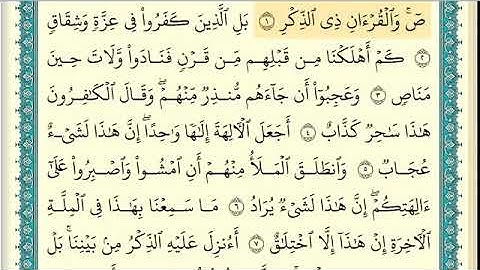 صٓۚ وَٱلْقُرْءَانِ ذِى ٱلذِّكْرِ ١ بَلِ ٱلَّذِينَ كَفَرُوا۟ فِى عِزَّةٍ وَشِقَاقٍ
٢ كَمْ أَهْلَكْنَا مِن قَبْلِهِم مِّن قَرْنٍ فَنَادَوا۟ وَّلَاتَ حِينَ
مَنَاصٍ ٣ وَعَجِبُوٓا۟ أَن جَآءَهُم مُّنذِرٌ مِّنْهُمْ ۖ وَقَالَ ٱلْكَٰفِرُونَ
هَٰذَا سَٰحِرٌ كَذَّابٌ ٤ أَجَعَلَ ٱلْءَالِهَةَ إِلَٰهًا وَٰحِدًا ۖ إِنَّ هَٰذَا لَشَىْءٌ
عُجَابٌ ٥ وَٱنطَلَقَ ٱلْمَلَأُ مِنْهُمْ أَنِ ٱمْشُوا۟ وَٱصْبِرُوا۟ عَلَىٰٓ
ءَالِهَتِكُمْ ۖ إِنَّ هَٰذَا لَشَىْءٌ يُرَادُ ٦ مَا سَمِعْنَا بِهَٰذَا فِى ٱلْمِلَّةِ
ٱلْءَاخِرَةِ إِنْ هَٰذَآ إِلَّا ٱخْتِلَٰقٌ ٧ أَءُنزِلَ عَلَيْهِ ٱلذِّكْرُ مِنۢ بَيْنِنَا ۚ بَلْ